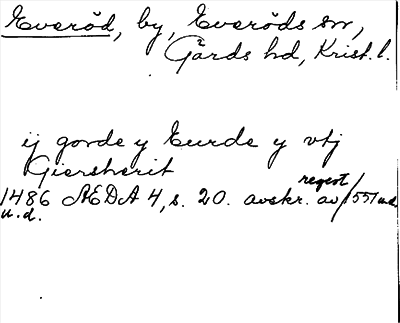 Everöd, by, Everöds sn,
Gärds hd, Krist. l.
ij gorde y Eurde y vtj
Giersherit
1486 ÆDA 4, s. 20. avskr. av regest 1551 u.d.
u.d.